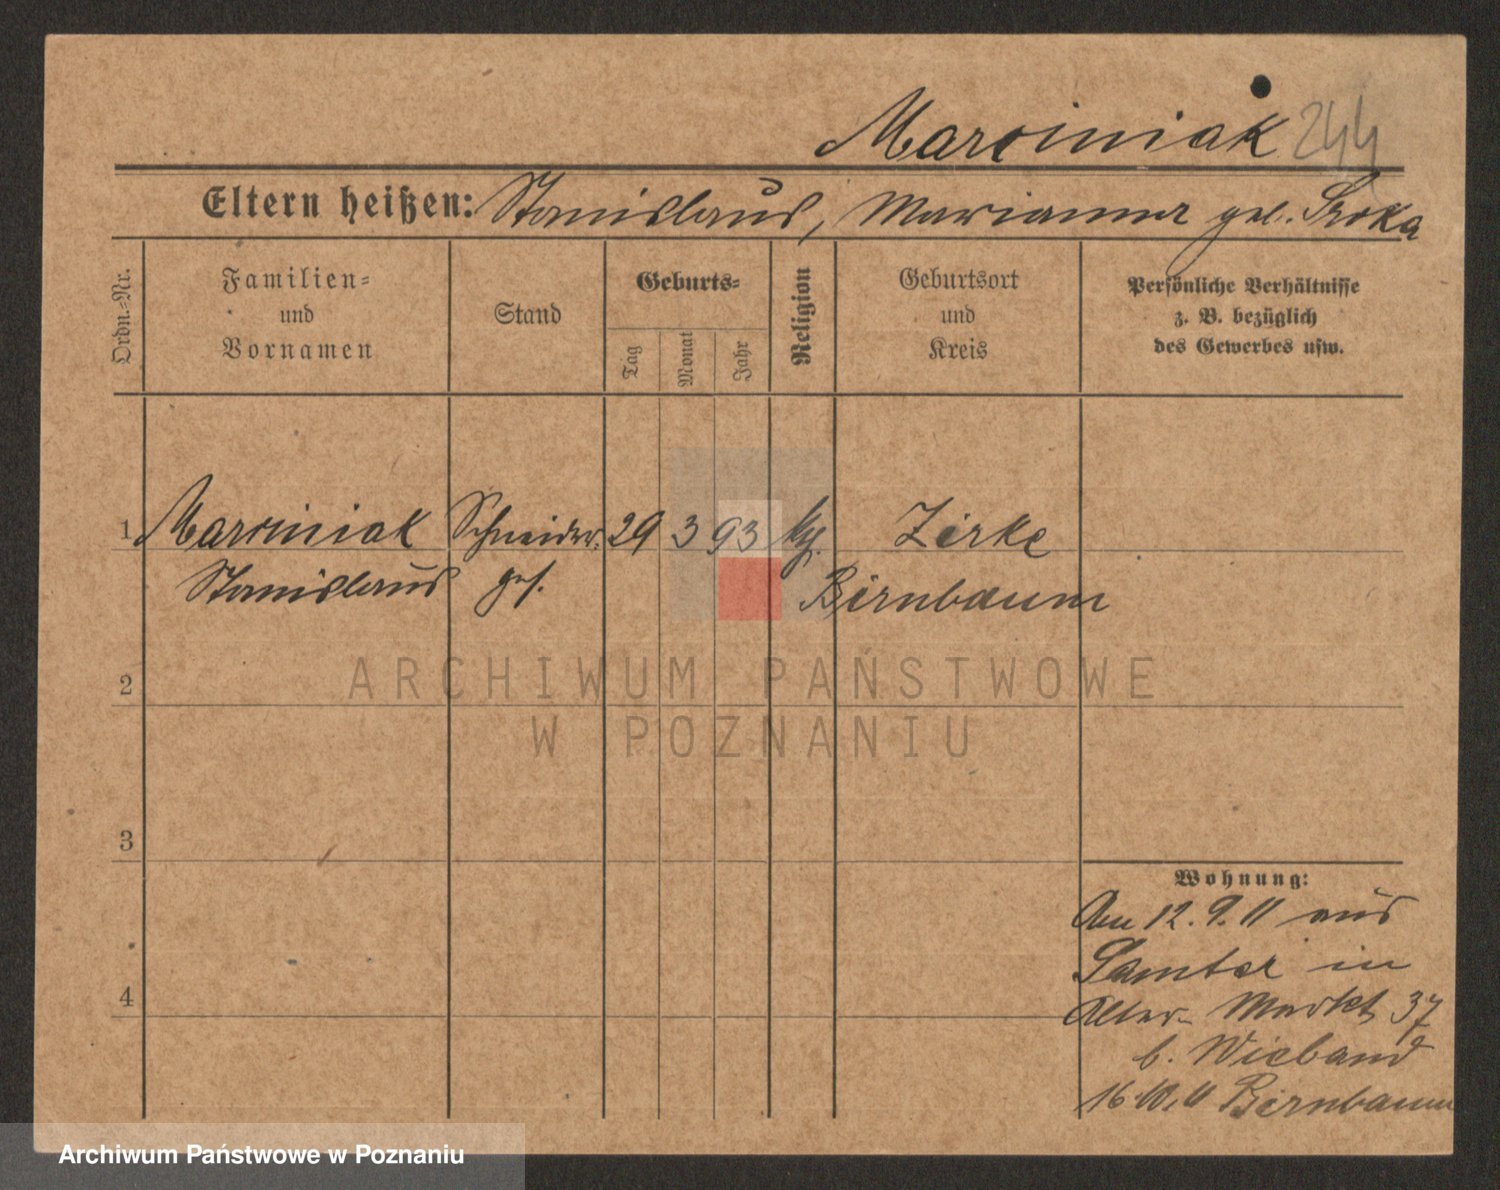 Marciniak 244
Eltern heißen: Stanislaus, Marianna geb. Sroka
Ordn.-Nr.
Familien-
und
Vornamen
Stand
Geburts-
Tag
Monat
Jahr
Religion
Geburtsort
und
Kreis
Persönliche Verhältnisse
z. B. bezüglich
des Gewerbes usw.
1 Marciniak Schneider- 29 3 93 kth. Zirke
Stanislaus ges. Birnbaum
2
3
4
Wohnung:
Am 12.9.11 aus
Samter in
Alter Markt 37
b. Wieband
16.10.11 Birnbaum
ARCHIWUM PAŃSTWOWE
W POZNANIU
Archiwum Państwowe w Poznaniu